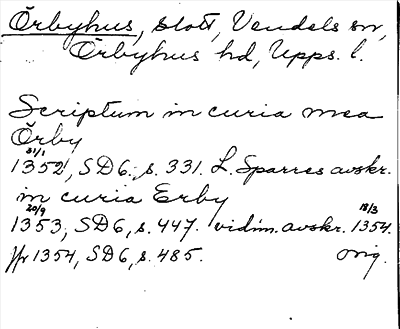 Örbyhus, slott, Vendels sn,
Örbyhus hd, Upps. l.
Scriptum in curia mea
Örby
31/1
1352, SD 6, s. 331. L. Sparres avskr.
in curia Erby
20/9 18/3
1353, SD 6, s. 447. vidim. avskr. 1354.
jfr 1354, SD 6, s. 485. orig.